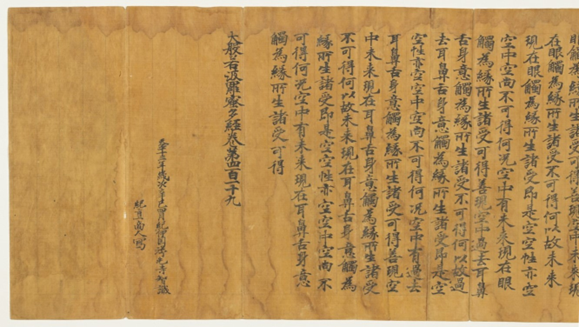 眼觸為緣所生諸受可得善現空中未來現
在眼觸為緣所生諸受不可得何以故未來
現在眼觸為緣所生諸受即是空空性亦空
空中空尚不可得何況空中有未來現在眼
觸為緣所生諸受可得善現空中過去耳鼻
舌身意觸為緣所生諸受不可得何以故過
去耳鼻舌身意觸為緣所生諸受即是空
空性亦空空中空尚不可得何況空中有過去
耳鼻舌身意觸為緣所生諸受可得善現空
中未來現在耳鼻舌身意觸為緣所生諸受
不可得何以故未來現在耳鼻舌身意觸為
緣所生諸受即是空空性亦空空中空尚不
可得何況空中有未來現在耳鼻舌身意
觸為緣所生諸受可得
大般若波羅蜜多經卷第四百十九